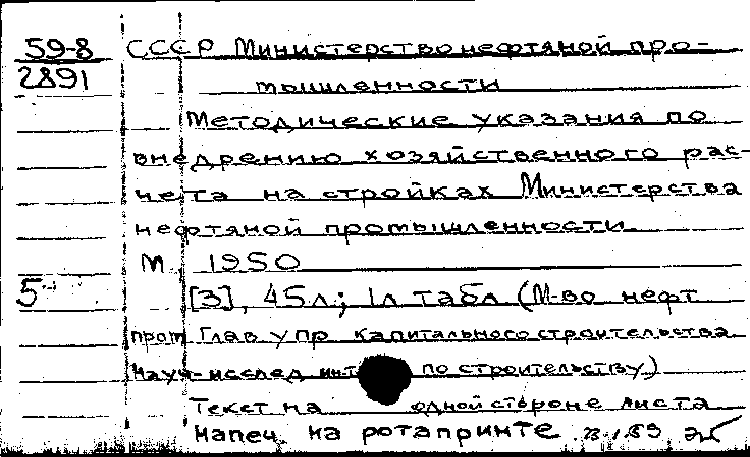 59-8 СССР Министерство нефтяной про-
2891 мышленности
Методические указания по
внедрению хозяйственного рас-
чета на стройках Министерства
нефтяной промышленности
М. 1950
5 [3], 45л; 1л табл (М-во нефт
пром Глав упр капитального строительства
Науч-исслед инт по строительству)
Текст на одной стороне листа
Напеч. на ротапринте